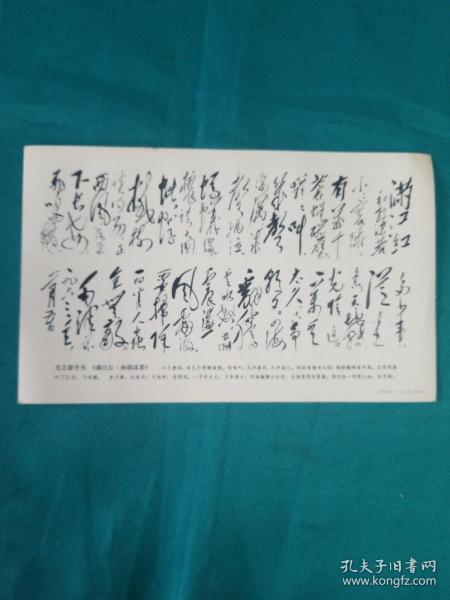 满江红
和郭沫若
小小寰球
有几个
苍蝇碰壁
嗡嗡叫
几声
凄厉几
声抽泣
蚂蚁缘
槐夸大国
蚍蜉
撼树
谈何易正
西风落叶
下长安
飞鸣镝
多少事
从来急
天地转
光阴迫
一万年
太久只争
朝夕四海
翻腾
云水怒五洲
震荡
风雷激
要扫除
一切害人虫
全无敌
毛泽东
一九六三年
毛主席手书 《满江红·和郭沫若》 小小寰球，有几个苍蝇碰壁。嗡嗡叫，几声凄厉，几声抽泣。蚂蚁缘槐夸大国，蚍蜉撼树谈何易。正西风落
叶下长安，飞鸣镝。 多少事，从来急；天地转，光阴迫。一万年太久，只争朝夕。四海翻腾云水怒，五洲震荡风雷激。要扫除一切害人虫，全无敌。
孔夫子旧书网
www.kongfz.com